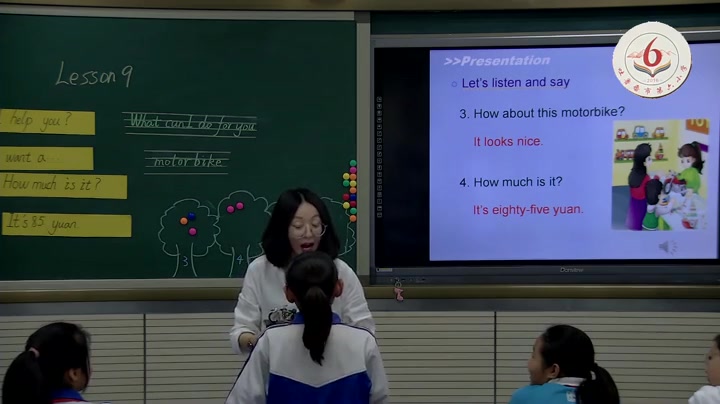 Lesson 9
help you?
want a...
How much is it?
It's 85 yuan.
What can I do for you
motorbike
3
4
>>Presentation
Let's listen and say
3. How about this motorbike?
It looks nice.
4. How much is it?
It's eighty-five yuan.
6